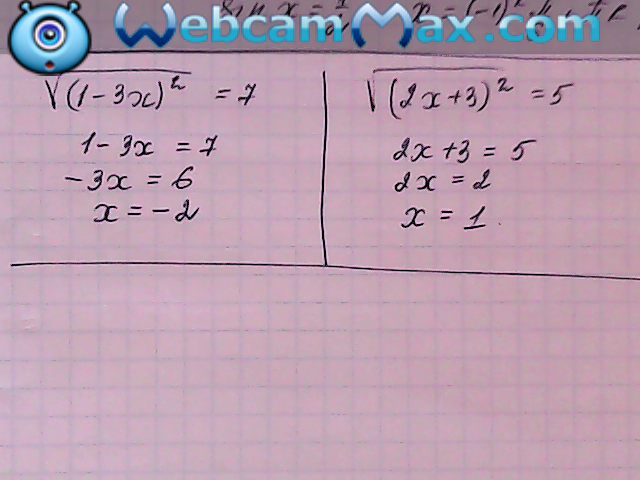 WebcamMax.com
√(1-3x)² = 7
1-3x = 7
-3x = 6
x = -2
√(2x+3)² = 5
2x+3 = 5
2x = 2
x = 1.